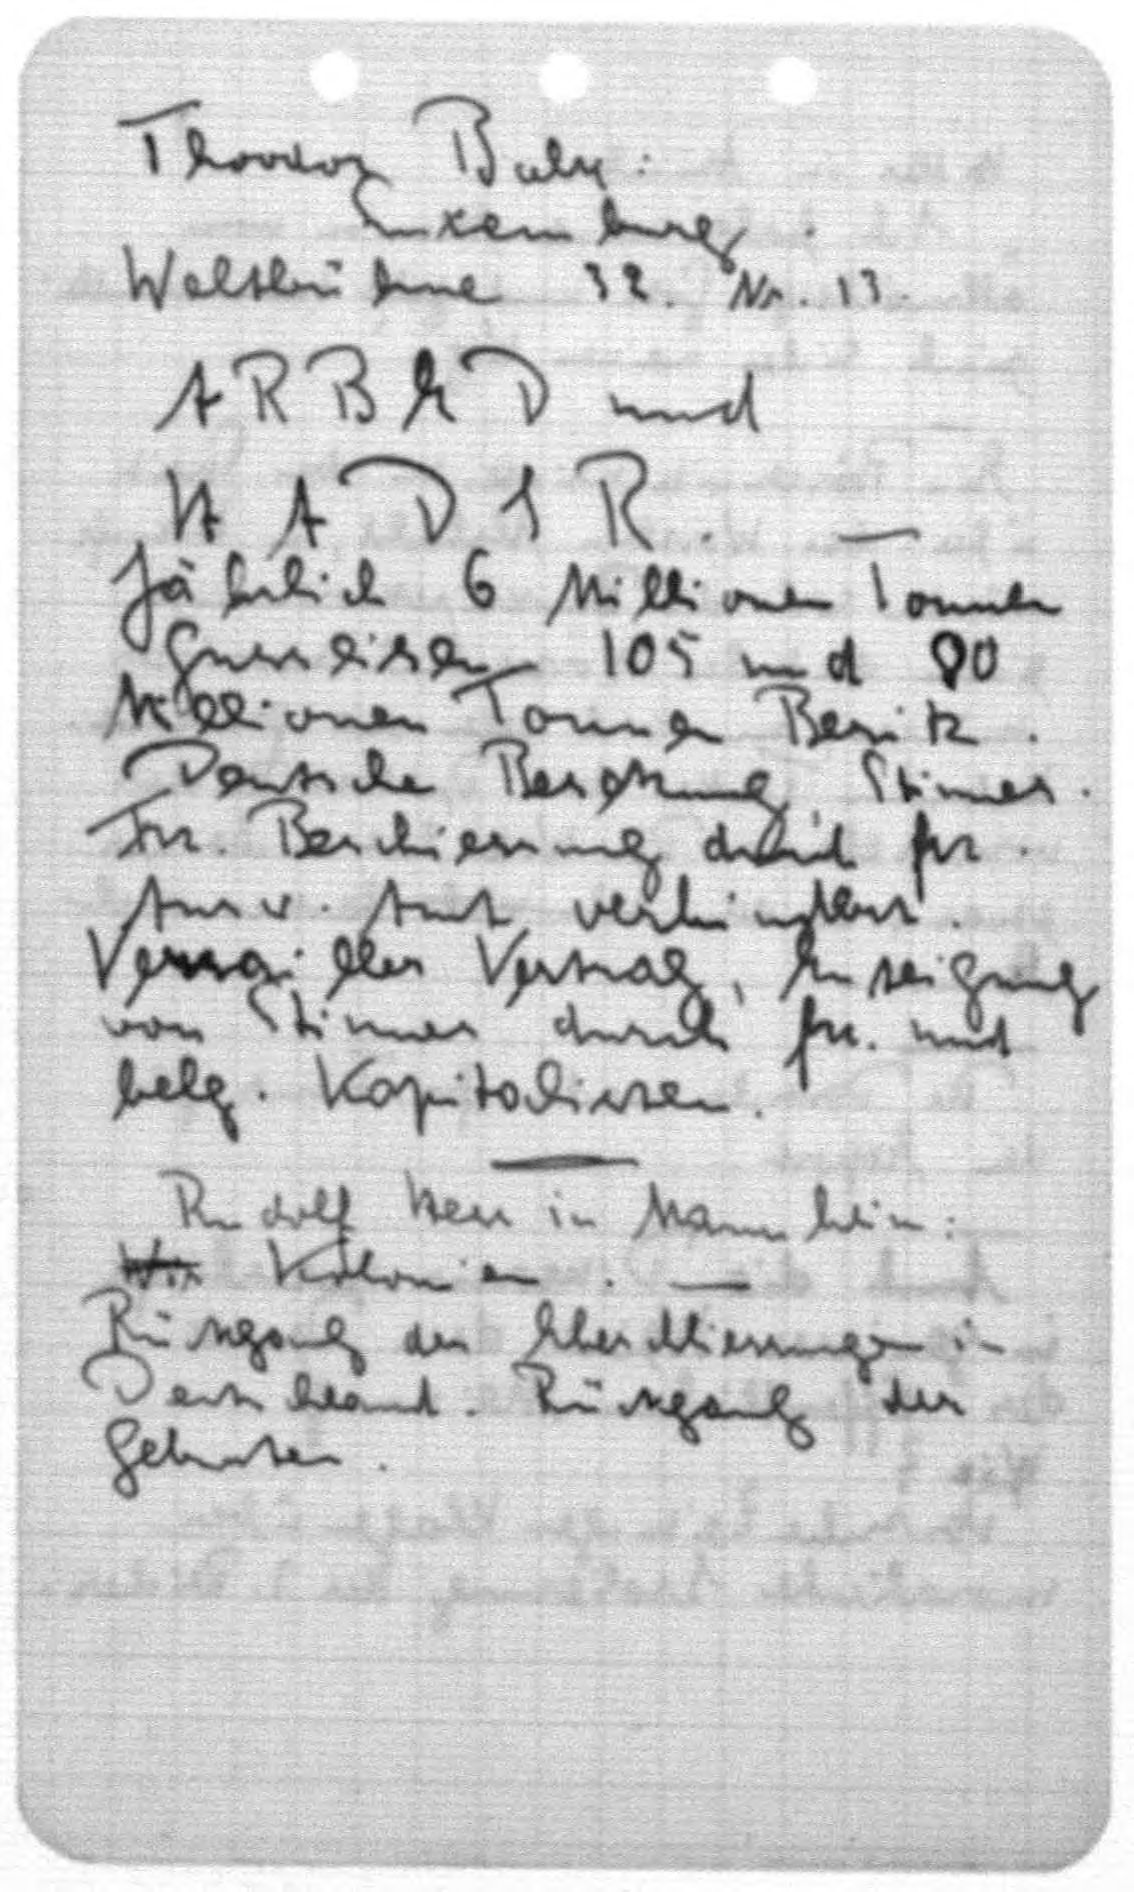 Theodor Balk:
Luxemburg.
Weltbühne 32. Nr. 13.
ARBED und
HADIR. —
Jährlich 6 Millionen Tonnen
Gusseisen 105 und 90
Millionen Tonnen Besitz.
Deutsche Besetzung, Stinnes.
Frz. Beschiessung durch frz.
Ausw. Amt verhindert.
Versailler Vertrag, Enteignung
von Stinnes durch frz. und
belg. Kapitalisten.
Rudolf Hess in Mannheim:
Kolonien. —
Rückgang der Eheschliessungen in
Deutschland. Rückgang der
Geburten.